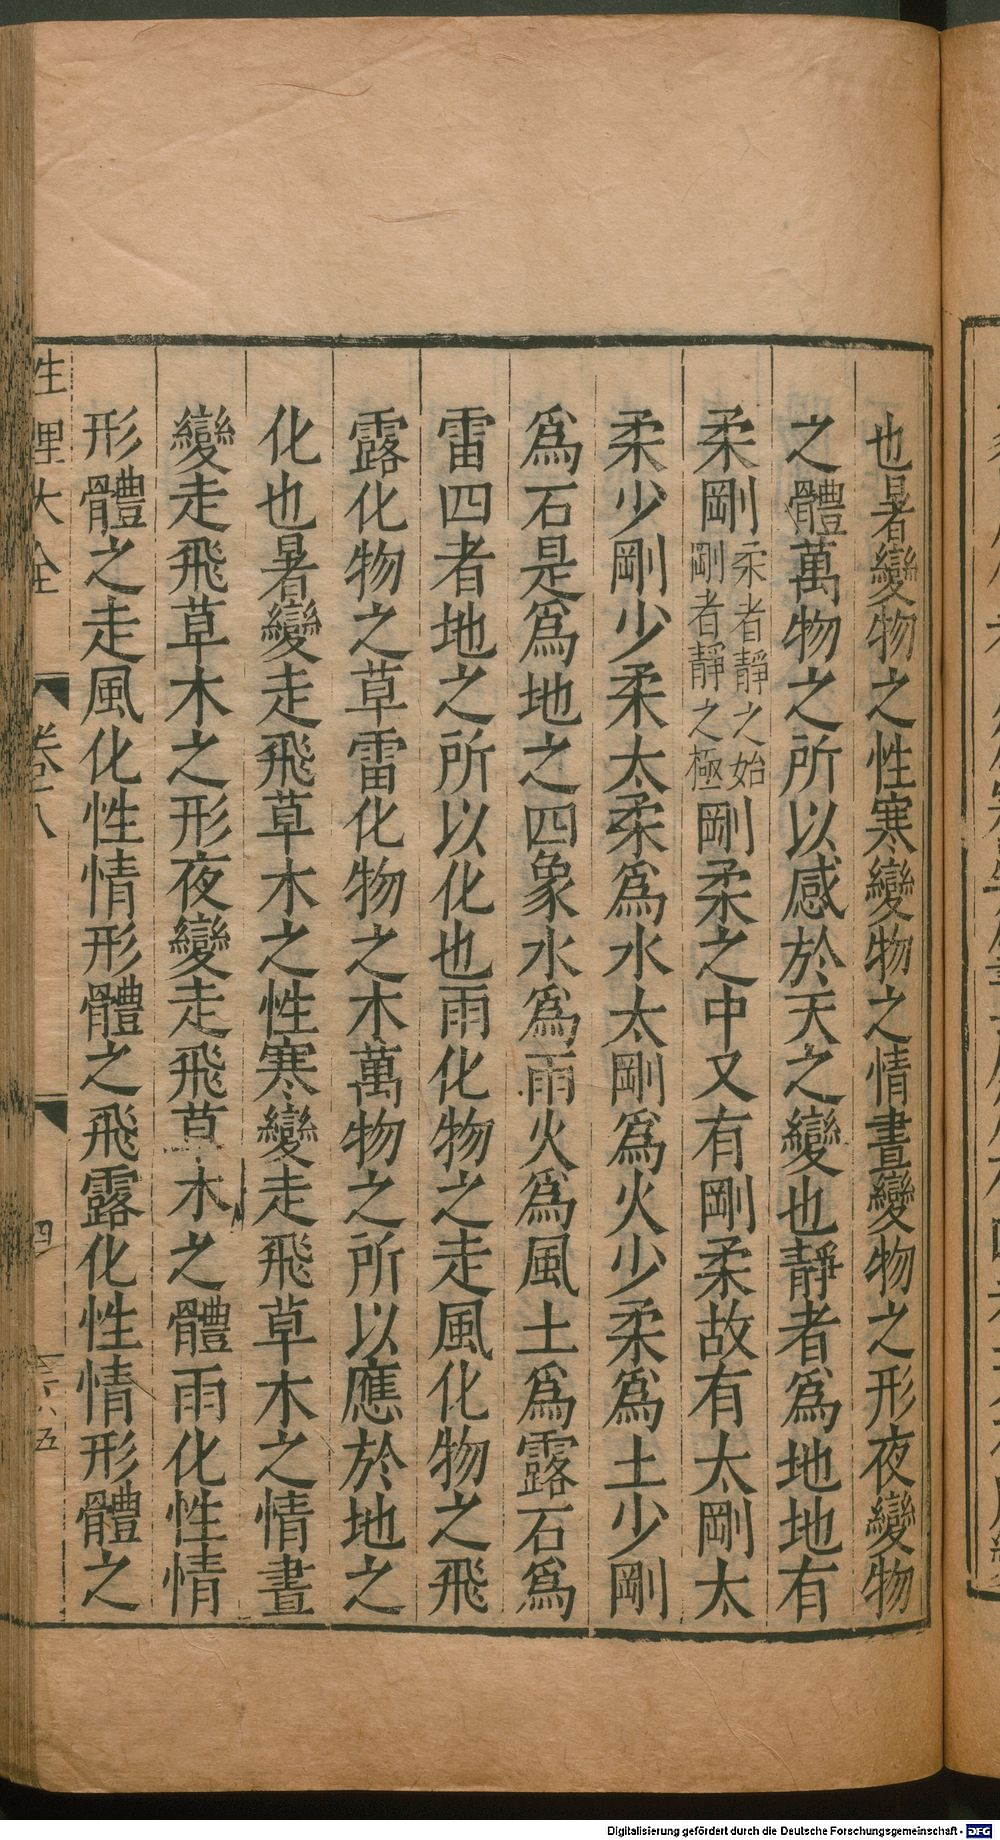 也暑變物之性寒變物之情晝變物之形夜變物
之體萬物之所以感於天之變也靜者爲地地有
柔剛柔者靜之始剛者靜之極剛柔之中又有剛柔故有太剛太
柔少剛少柔太柔爲水太剛爲火少柔爲土少剛
爲石是爲地之四象水爲雨火爲風土爲露石爲
雷四者地之所以化也雨化物之走風化物之飛
露化物之草雷化物之木萬物之所以應於地之
化也暑變走飛草木之性寒變走飛草木之情晝
變走飛草木之形夜變走飛草木之體雨化性情
形體之走風化性情形體之飛露化性情形體之
性理大全 卷八 四
Digitalisierung gefördert durch die Deutsche Forschungsgemeinschaft - DFG